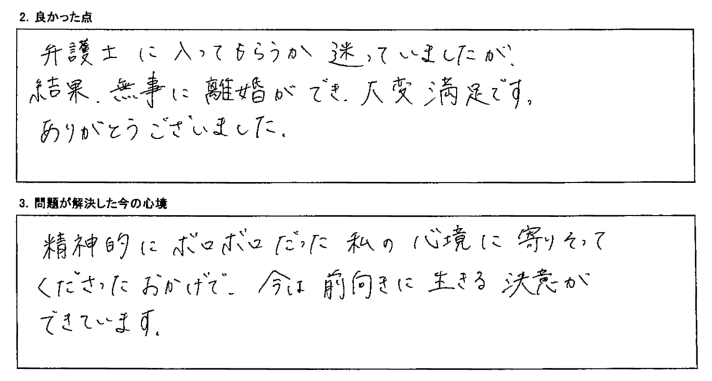 2. 良かった点
弁護士に入ってもらうか迷っていましたが、
結果、無事に離婚ができ、大変満足です。
ありがとうございました。
3. 問題が解決した今の心境
精神的にボロボロだった私の心境に寄りそって
くださったおかげで、今は前向きに生きる決意が
できています。